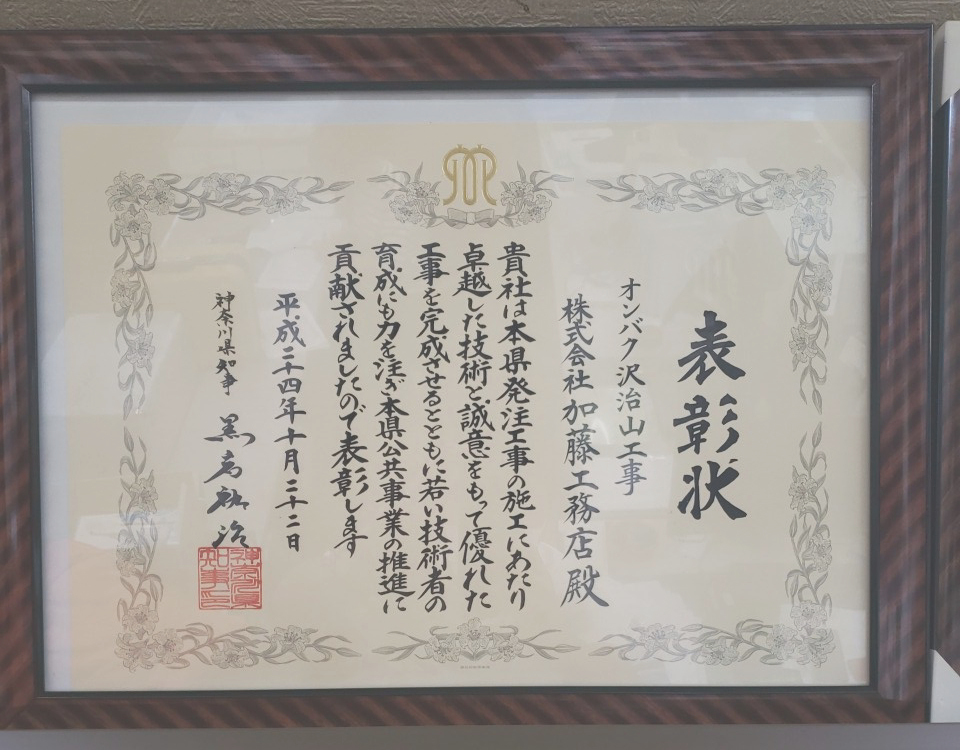 表彰状
オンバク沢治山工事
株式会社 加藤工務店 殿
貴社は本県発注工事の施工にあたり
卓越した技術と誠意をもって優れた
工事を完成させるとともに若い技術者の
育成にも力を注ぎ本県公共事業の推進に
貢献されましたので表彰します
平成二十四年十月二十二日
神奈川県知事 黒岩祐治
神奈川県知事印